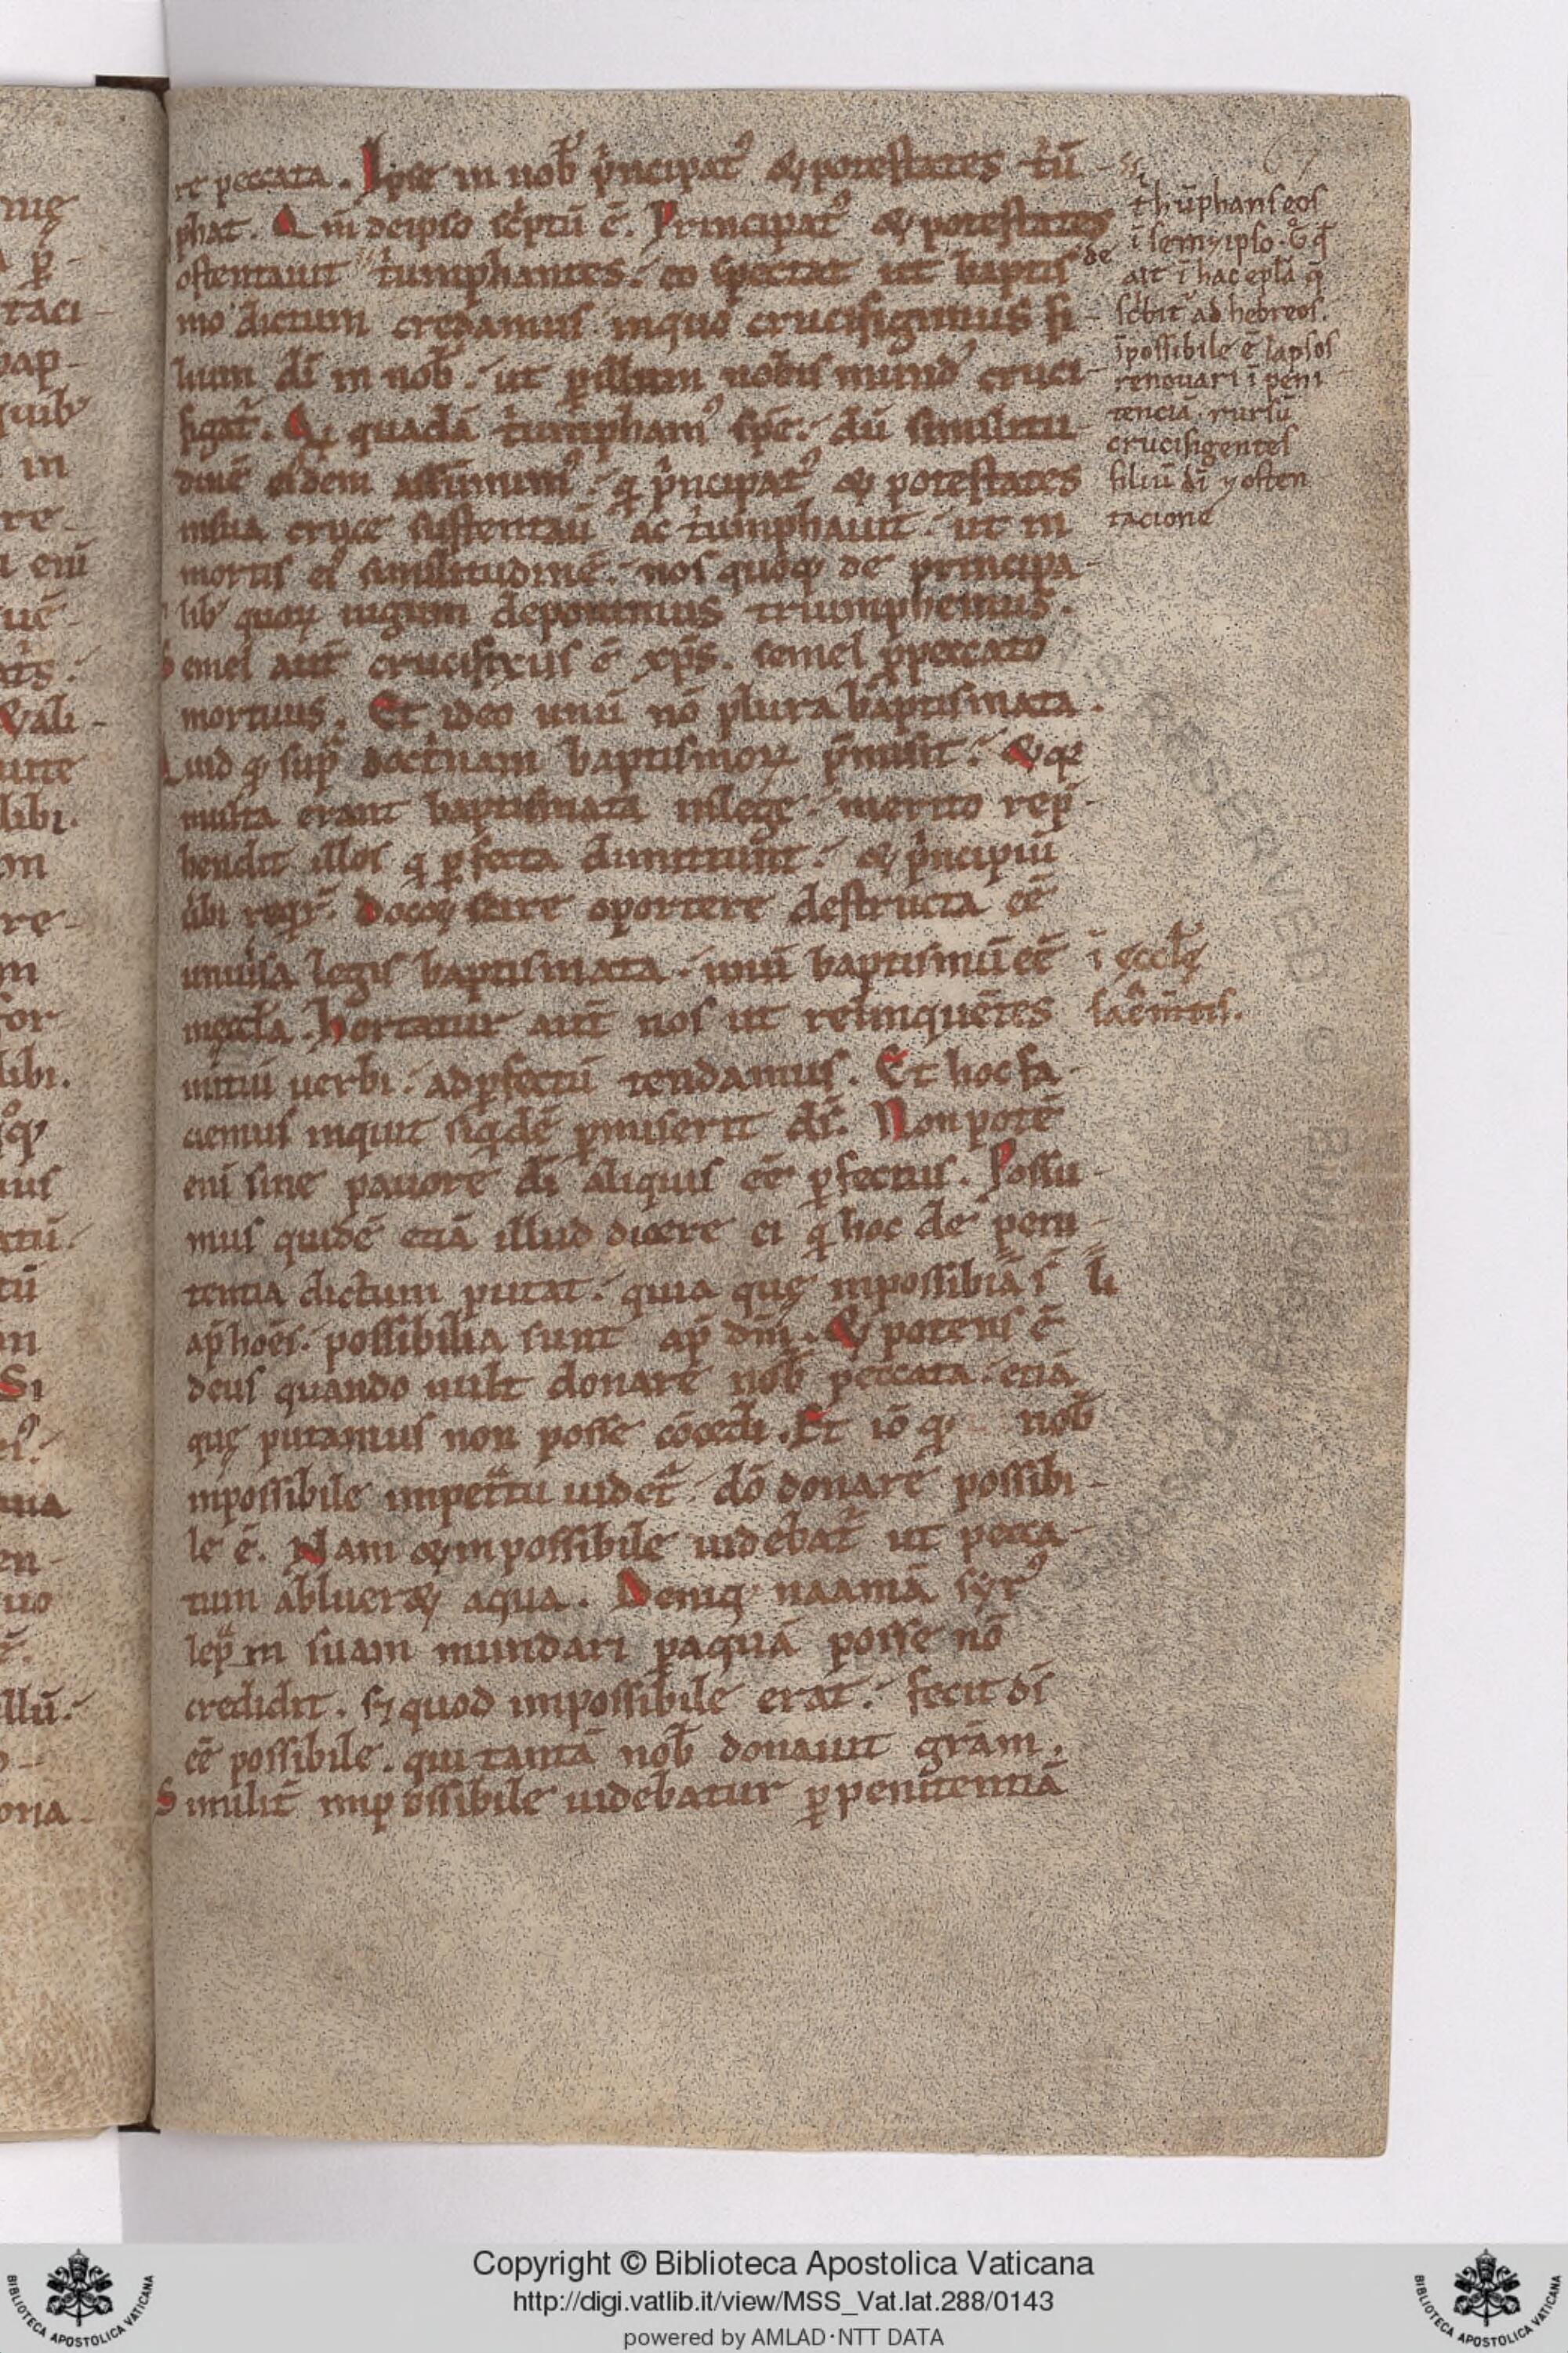 re peccata. Ipse in nob̄ p̍ncipat⁹ & potestates t̍ū-
phat. Qm̄ de ipso sc̍ptū ē. Principat⁹ & potestates
ostentauit t̍umphantes. eo spectat ut baptis de
mo dictum credamus inquo crucifigimus fi-
lium dī in nob̄. ut p̱ illum nobis mund⁹ cruci-
figat᷑. Q̍ quadā t̍umpham⁹ spē. dū similitu
dinē ei⁹dem assumim⁹. q̍ p̍ncipat⁹ & potestates
insua cruce sustentaū ac t̍umphauit. ut in
mortis ei⁹ similitudinē. nos quoq; de principa-
lib; quoꝝ iugum deponimus triumphemus.
Semel aut̄ crucifixus ē xp̄s. semel p̱ peccato
mortuus. Et ideo unū nō plura baptismata.
Quid q; sup̱ doct̍nam baptismoꝝ p̄misit. & q̱
multa erant baptismata inlege. merito rep̄-
hendit illos q̍ p̱fecta dimittunt. & p̍ncipiū
uerbi req̍r̄. Docoꝝ scire oportere destructa eē
uniu̍sa legis baptismata. unū baptismū eē ī ęcclę
inęccl̄a. Hortatur aut̄ nos ut relinquētes sac̄m̄tis.
initiū uerbi. ad p̱fectū tendamus. Et hoc fa-
ciemus inquit siq̍dē p̱miserit dī. Non potē
enī sine pauore dī aliquis eē p̱fectus. Possu-
mus quidē etiā illud dicere ei q̍ hoc de peni-
tentia dictum putat. quia quę inpossibiā s̄ li
ap̄ hoēs. possibilia sunt ap̄ dm̄. & potens ē
deus quando uult donare nob̄ peccata. etiā
quę putamus non posse cōcedi. Et iō q; nob̄
inpossibile impet̍tu uidet᷑. dō donare possibi-
le ē. Nam & inpossibile uidebat᷑ ut pecca-
tum abluer& aqua. Deniq; naamā syr⁹
lep̱m suam mundari p̱ aquā posse nō
credidit. s; quod impossibile erat. fecit dī
eē possibile. qui tantā nob̄ donauit grām.
Similit̄ impossibile uidebatur p̱ penitentiā
67
t̍hūphans eos
ī sem; ipso. G̊ q̄
ait ī hac epl̄a q̄
sc̍bit᷑ ad hebreos.
īpossibile ē lapsos
renouari ī peni
tenciā. rursū
crucifigentes
filiū dī ⁊ osten
tacione
Copyright © Biblioteca Apostolica Vaticana
http://digi.vatlib.it/view/MSS_Vat.lat.288/0143
powered by AMLAD·NTT DATA
BIBLIOTECA APOSTOLICA VATICANA
BIBLIOTECA APOSTOLICA VATICANA